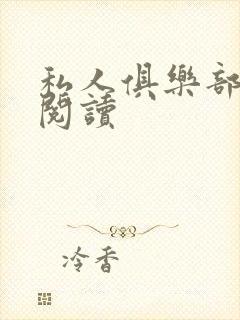 私人俱樂部
閱讀
冷香